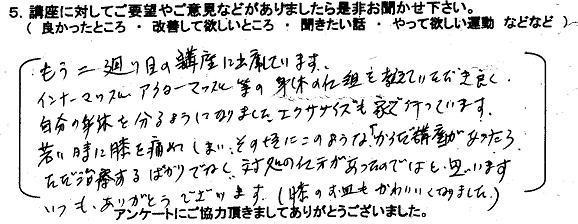 5. 講座に対してご要望やご意見などがありましたら是非お聞かせ下さい。
( 良かったところ ・ 改善して欲しいところ ・ 聞きたい話 ・ やって欲しい運動 などなど )
もう二廻り目の講座に出席しています。
インナーマッスル アウターマッスル等の身体の仕組も教えていただき良く
自分の身体を分るようになりました。エクササイズも家で行っています。
若い時に膝を痛めてしまい、その時にこのような「からだ講座」があったら
ただ治療するばかりでなく、対処の仕方があったのではと思います
いつも、ありがとうございます。(膝のお皿もかわいくなりました。)
アンケートにご協力頂きましてありがとうございました。